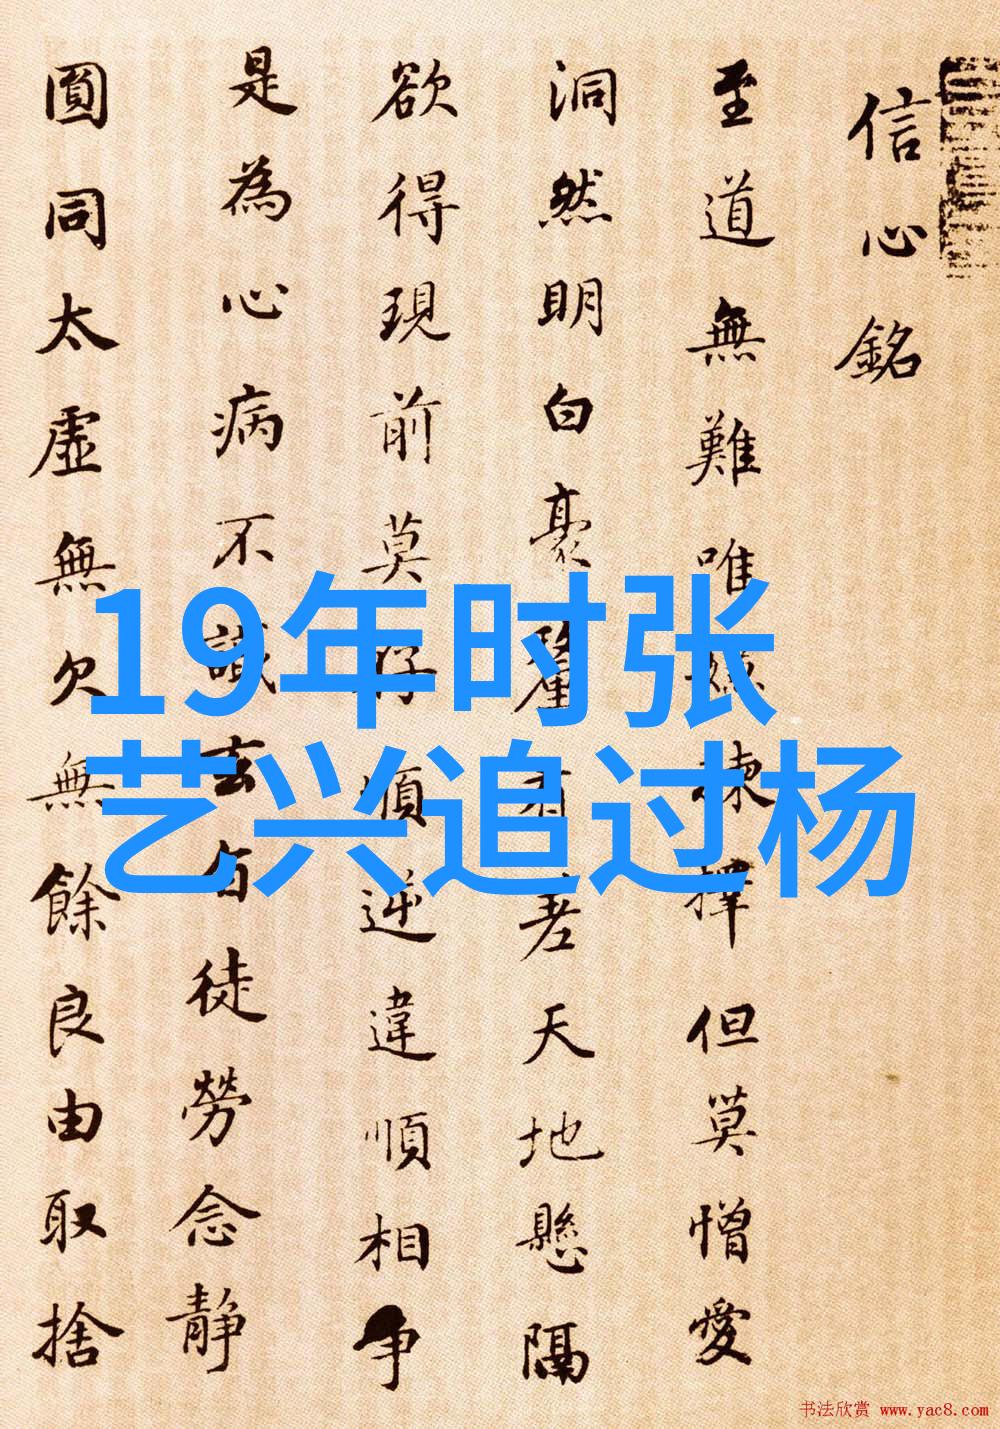 信心銘
至道無難唯嫌揀擇但莫憎愛
洞然明白毫釐有差天地懸隔
欲得現前莫存順逆違順相争
是為心病不識玄旨徒勞念静
圓同太虛無欠無餘良由取捨
19年时张
艺兴追过杨
书法欣赏 www.yac8.com